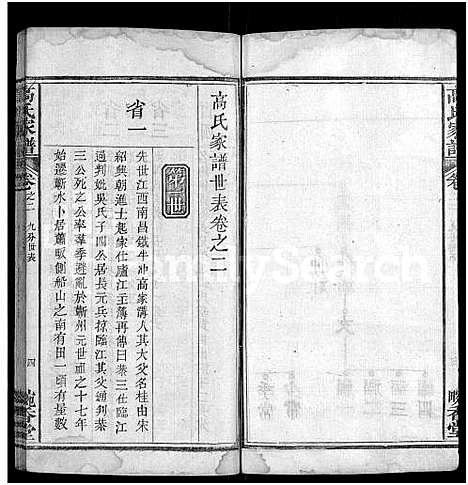 高氏家譜世表卷之二
第一世
省一
先世江西南昌鐵牛冲高家溝人其大父名桂由宋
紹興朝進士起家仕廬江主薄再傳曰葉三仕臨江
通判妣吳氏子四公居長元兵掠臨江其父通判葉
三公死之公率羣季避亂於蘄州元世祖之十七年
始遷蘄水卜居蕭馭側船山之南有田一頃有屋數
高氏家譜
卷之二 九分世表
四
晚香堂
高氏家譜
卷
晚香堂
FamilySearch